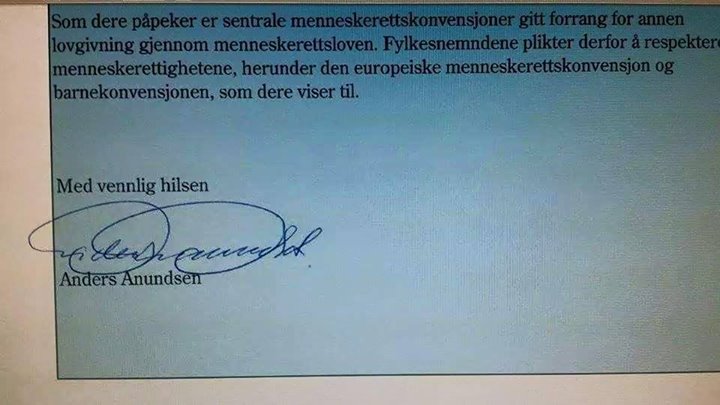 Som dere påpeker er sentrale menneskerettskonvensjoner gitt forrang for annen
lovgivning gjennom menneskerettsloven. Fylkesnemndene plikter derfor å respektere
menneskerettighetene, herunder den europeiske menneskerettskonvensjon og
barnekonvensjonen, som dere viser til.
Med vennlig hilsen
Anders Anundsen